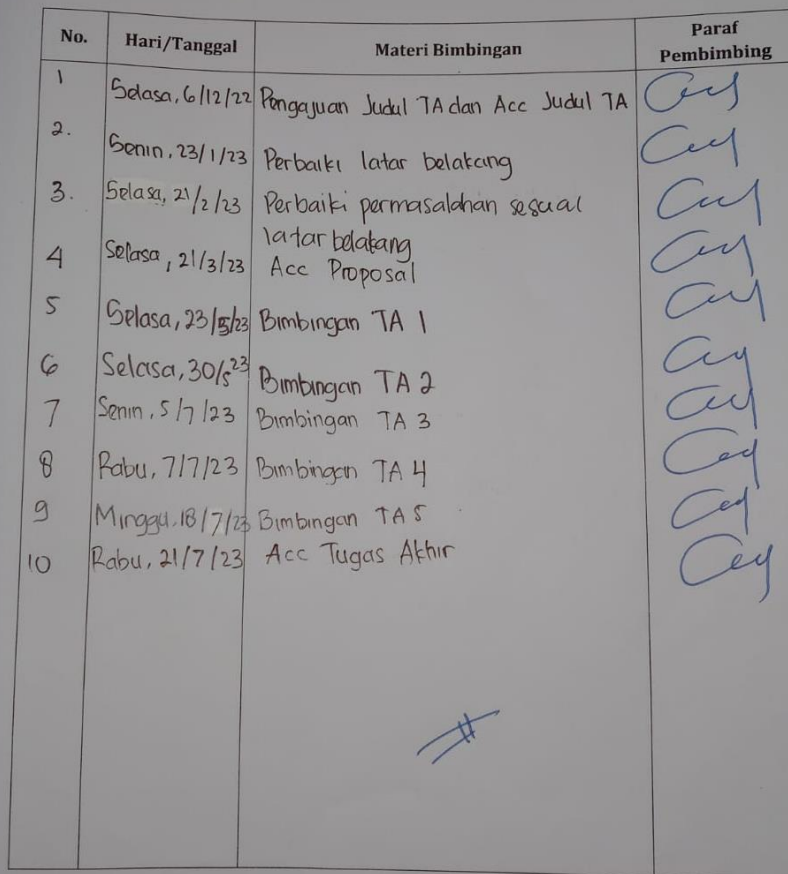 No. Hari/Tanggal Materi Bimbingan Paraf Pembimbing
1 Selasa, 6/12/22 Pengajuan Judul TA dan Acc Judul TA
2. Senin, 23/1/23 Perbaiki latar belakang
3. Selasa, 21/2/23 Perbaiki permasalahan sesuai
latar belakang
4 Selasa, 21/3/23 Acc Proposal
5 Selasa, 23/5/23 Bimbingan TA 1
6 Selasa, 30/5 23 Bimbingan TA 2
7 Senin, 5/7/23 Bimbingan TA 3
8 Rabu, 7/7/23 Bimbingan TA 4
9 Minggu, 18/7/23 Bimbingan TA 5
10 Rabu, 21/7/23 Acc Tugas Akhir